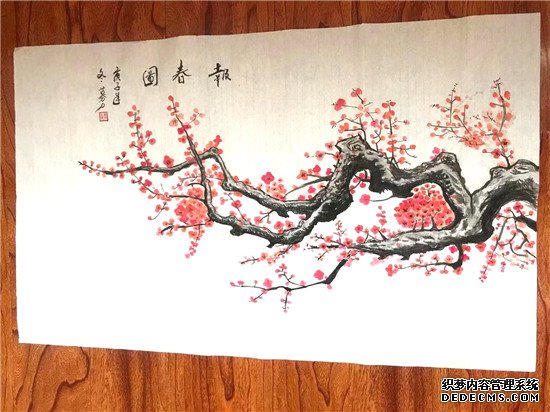 報春圖
庚子年
冬
织梦内容管理系统
DEDECMS.COM